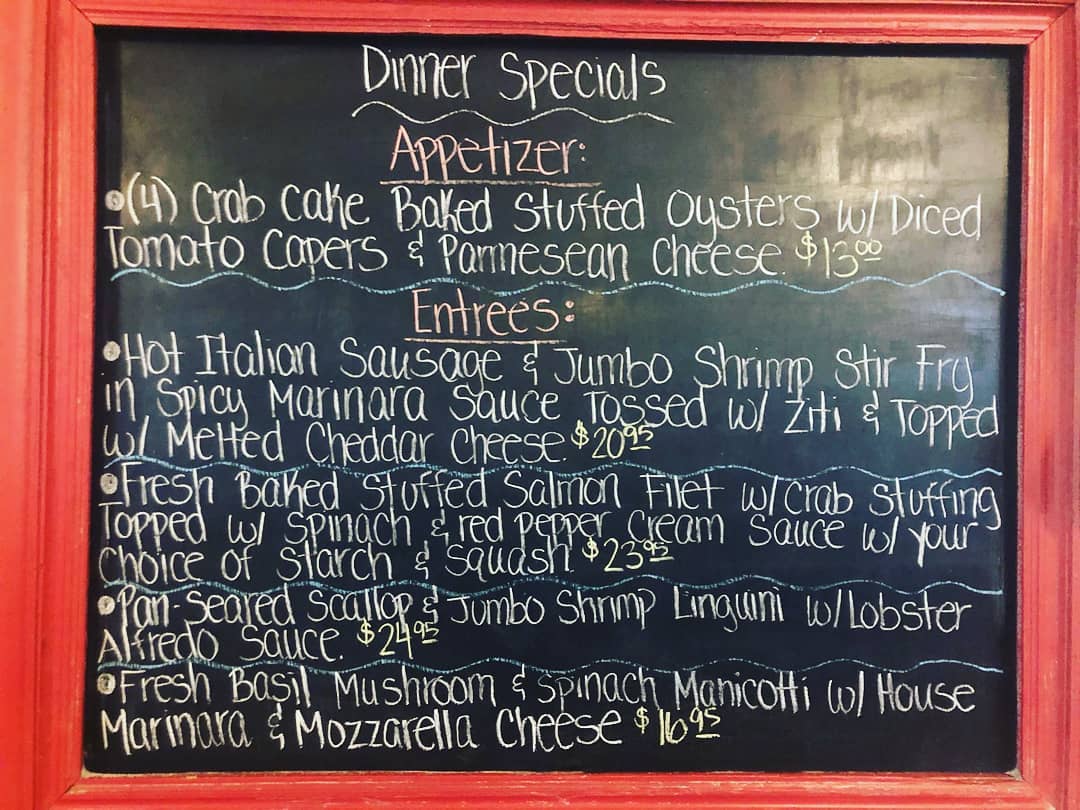 Dinner Specials
Appetizer:
•(4) Crab Cake Baked Stuffed Oysters w/ Diced
Tomato Capers & Parmesean Cheese. $13.00
Entrees:
•Hot Italian Sausage & Jumbo Shrimp Stir Fry
in Spicy Marinara Sauce Tossed w/ Ziti & Topped
w/ Melted Cheddar Cheese. $20.95
•Fresh Baked Stuffed Salmon Filet w/ Crab Stuffing
Topped w/ Spinach & red pepper Cream Sauce w/ your
Choice of Starch & Squash. $23.95
•Pan-Seared Scallop & Jumbo Shrimp Linguini w/ Lobster
Alfredo Sauce. $24.95
•Fresh Basil Mushroom & Spinach Manicotti w/ House
Marinara & Mozzarella Cheese $16.95